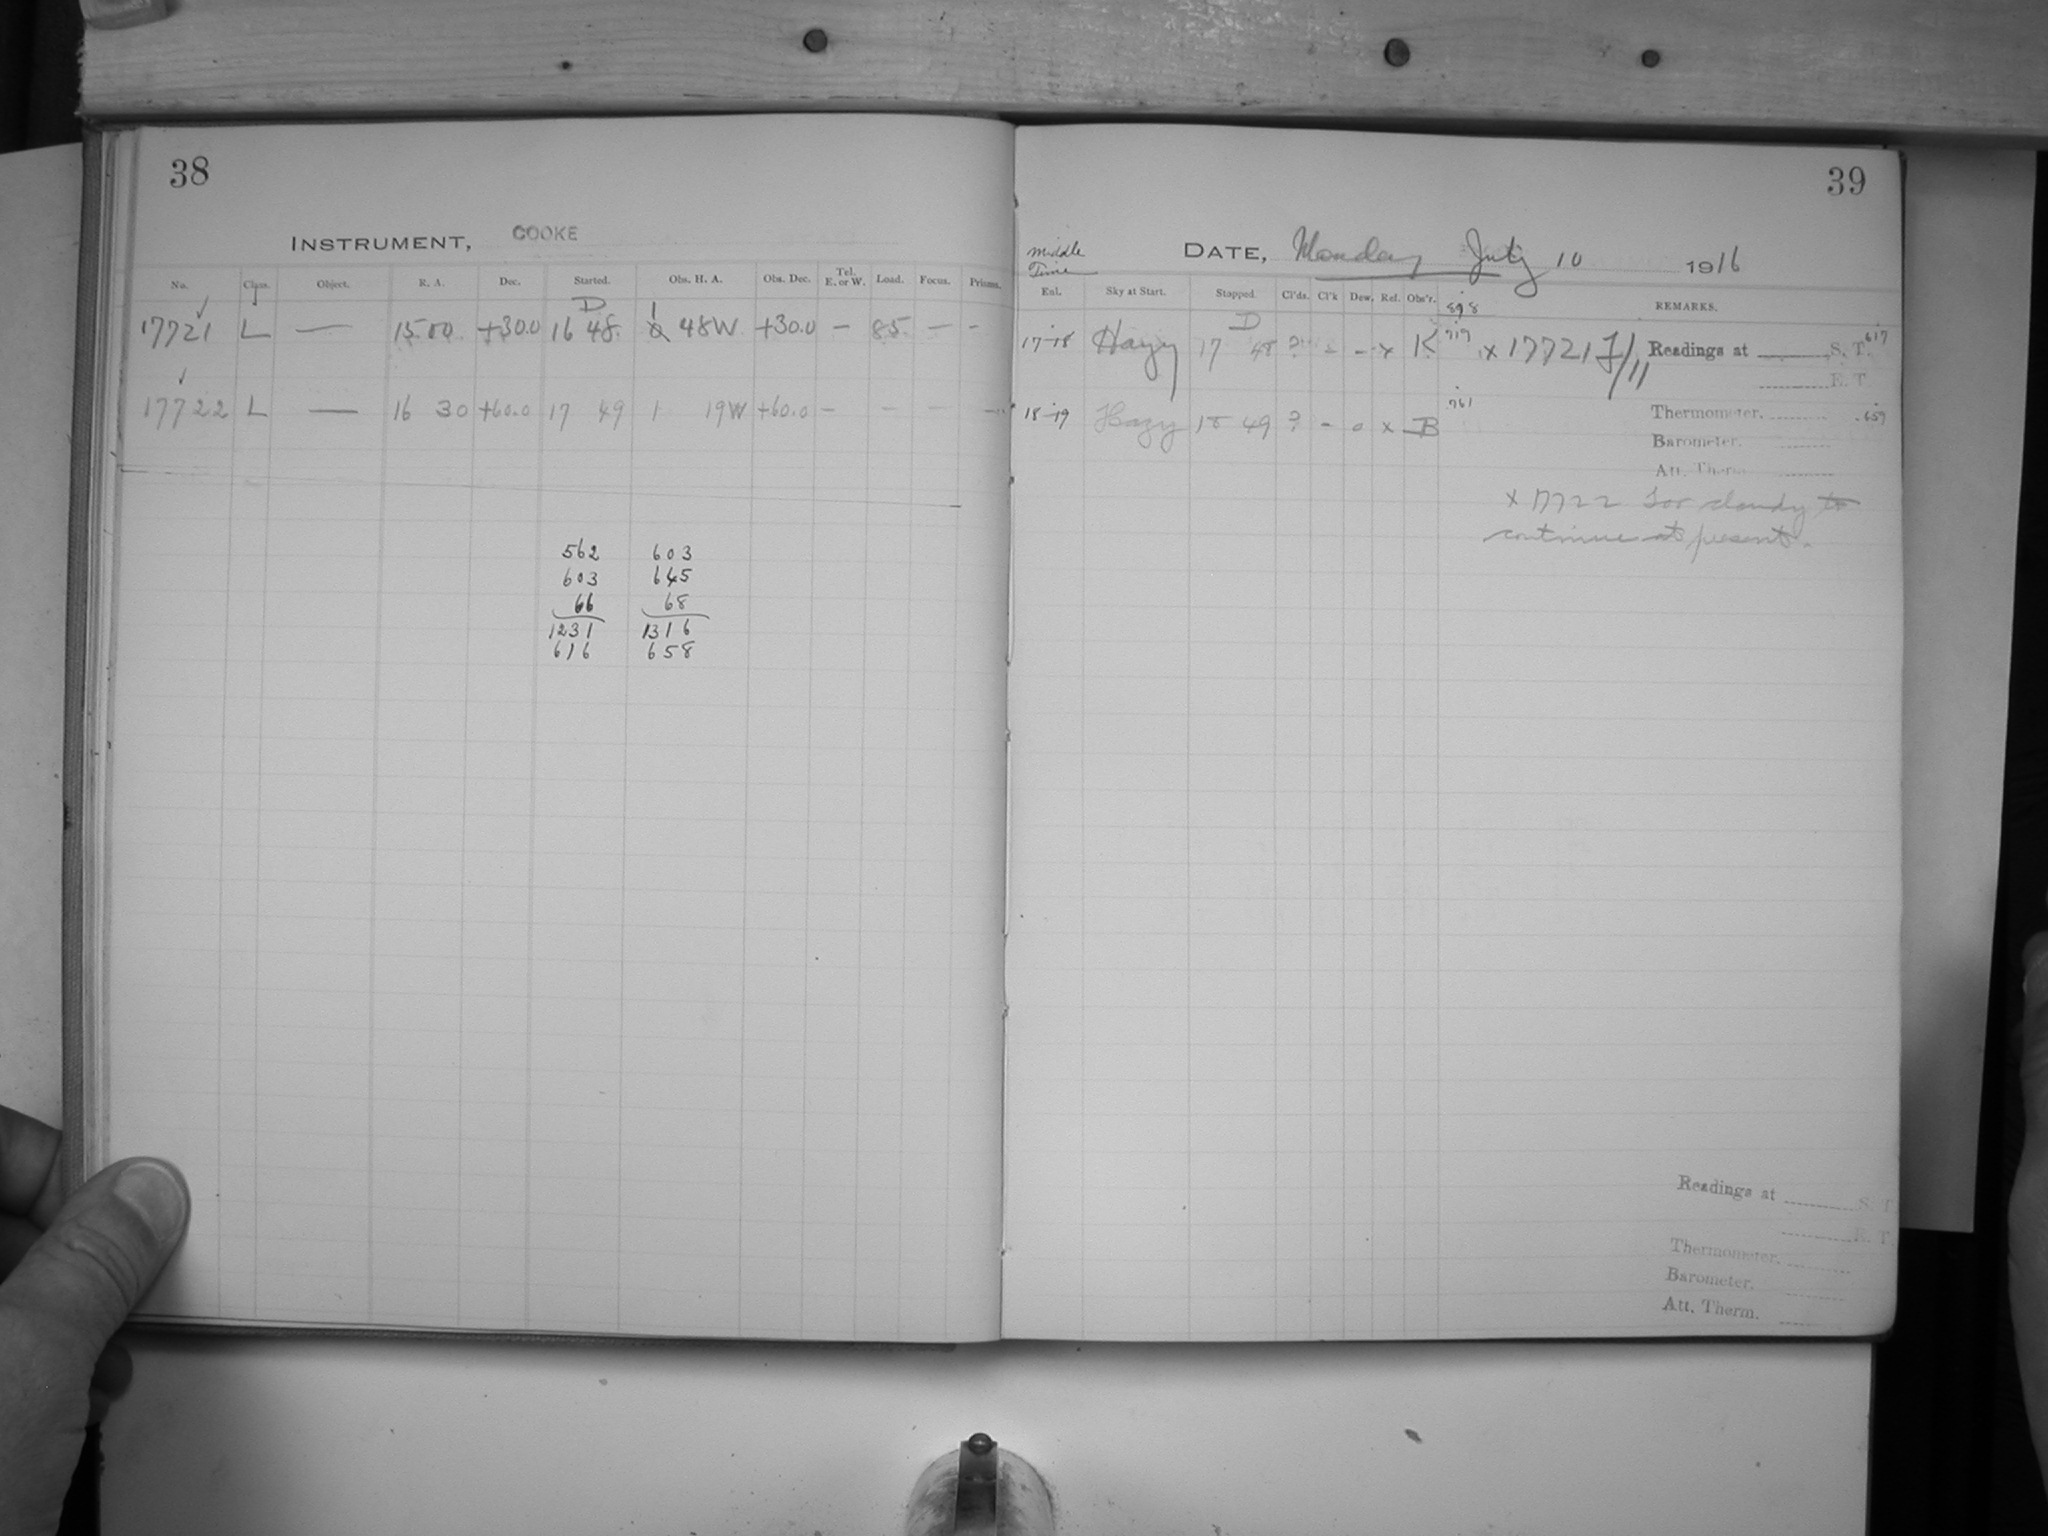 38
INSTRUMENT, COOKE
No. Class. Object. R. A. Dec. Started. Obs. H. A. Obs. Dec. Tel. E. or W. Load. Focus. Prisms.
D
17721 L — 15 00 +30.0 16 48 1 48W +30.0 — 85 — -
17722 L — 16 30 +60.0 17 49 1 19W +60.0 - - - -
562 603
603 645
66 68
1231 1316
616 658
39
Middle Time
DATE, Monday July 10 1916
Exl. Sky at Start. Stopped Cl'ds. Cl'k Dew. Ref. Obs'r. REMARKS.
898
D
17-18 Hazy 17 48 ? - - x K 719 x 17721 J/11 Readings at S. T. 617
E. T
18-19 Hazy 18 49 ? - 0 x B 761
Thermometer. .659
Barometer.
Att. Therm
x 17722 Too cloudy to
continue at present.
Readings at S. T
E. T
Thermometer.
Barometer.
Att. Therm.